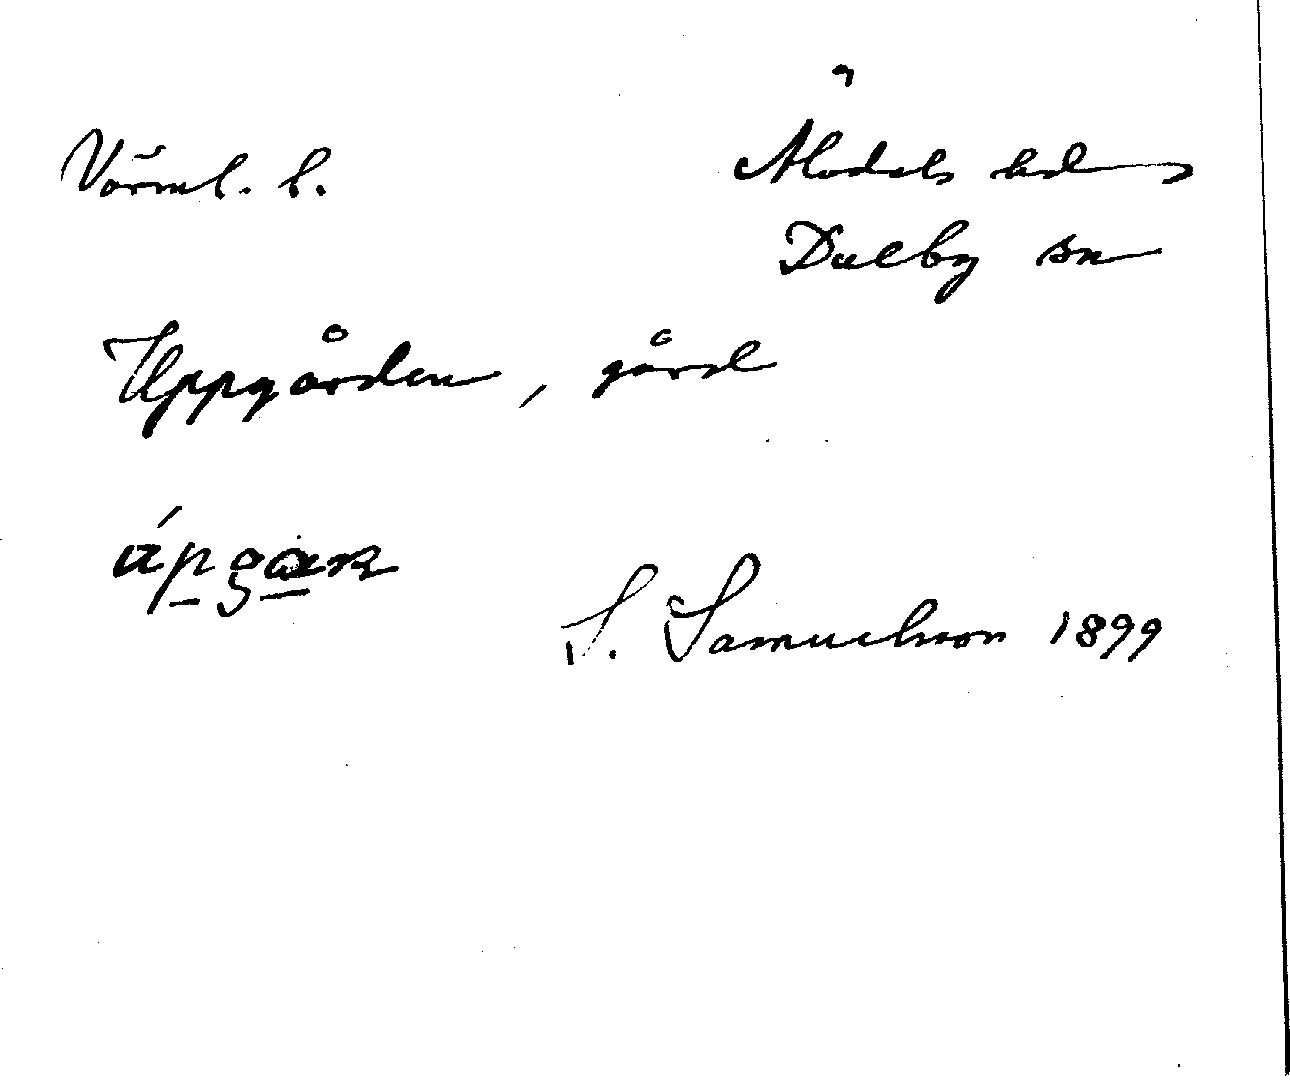 Värml. l. Älvdals hd
Dalby sn
Uppgården, gård
S. Samuelsson 1899